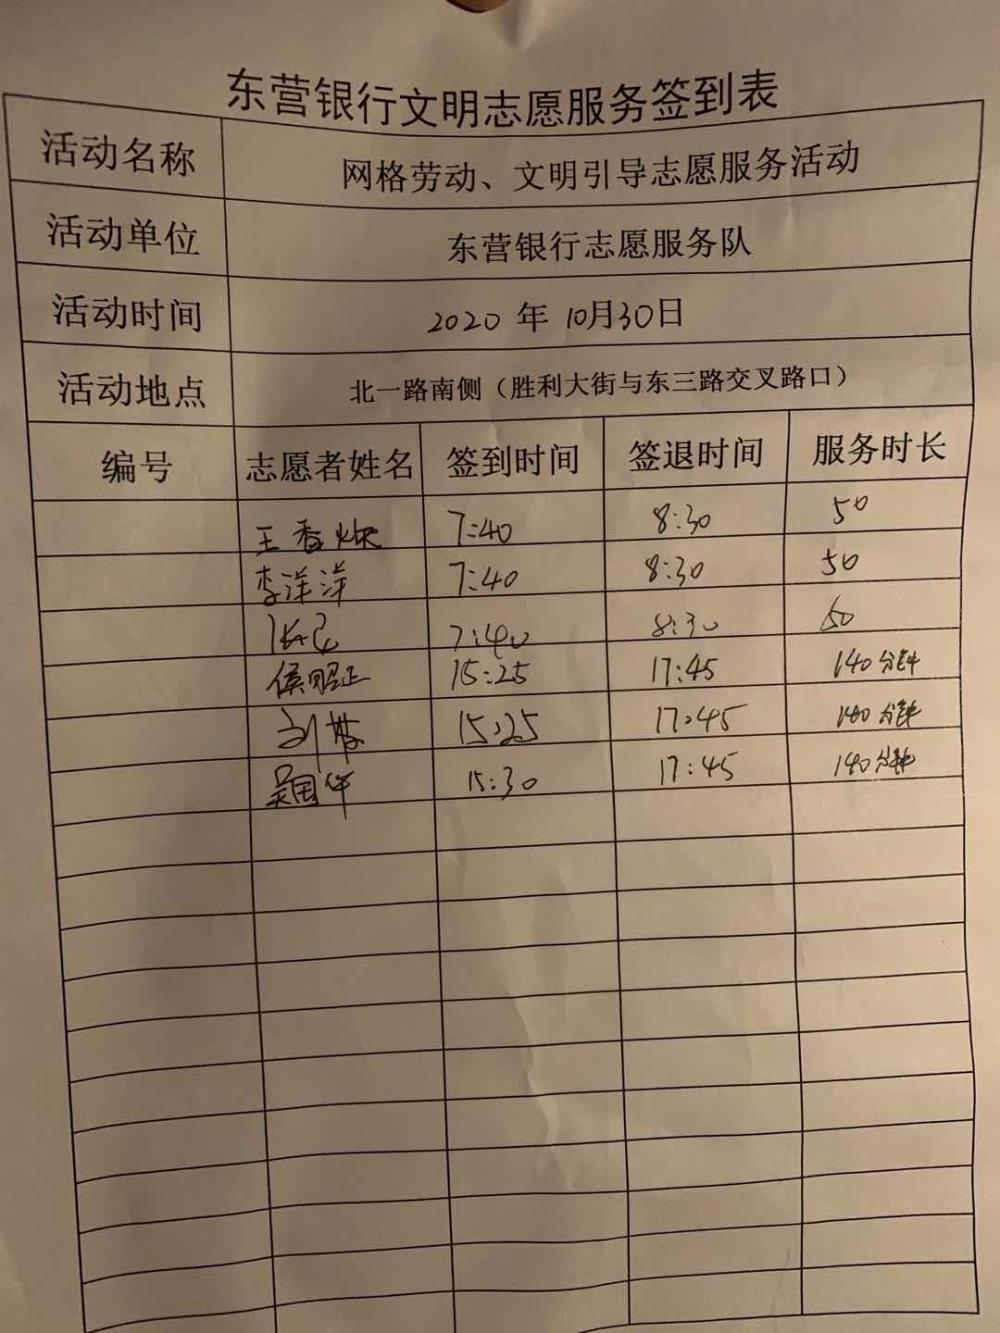 东营银行文明志愿服务签到表
活动名称 网格劳动、文明引导志愿服务活动
活动单位 东营银行志愿服务队
活动时间 2020 年 10月30日
活动地点 北一路南侧（胜利大街与东三路交叉路口）
编号 志愿者姓名 签到时间 签退时间 服务时长
王香 7:40 8:30 50
李洋洋 7:40 8:30 50
7:40 8:30 50
侯明正 15:25 17:45 140分钟
刘 15:25 17:45 140分钟
吴国华 15:30 17:45 140分钟